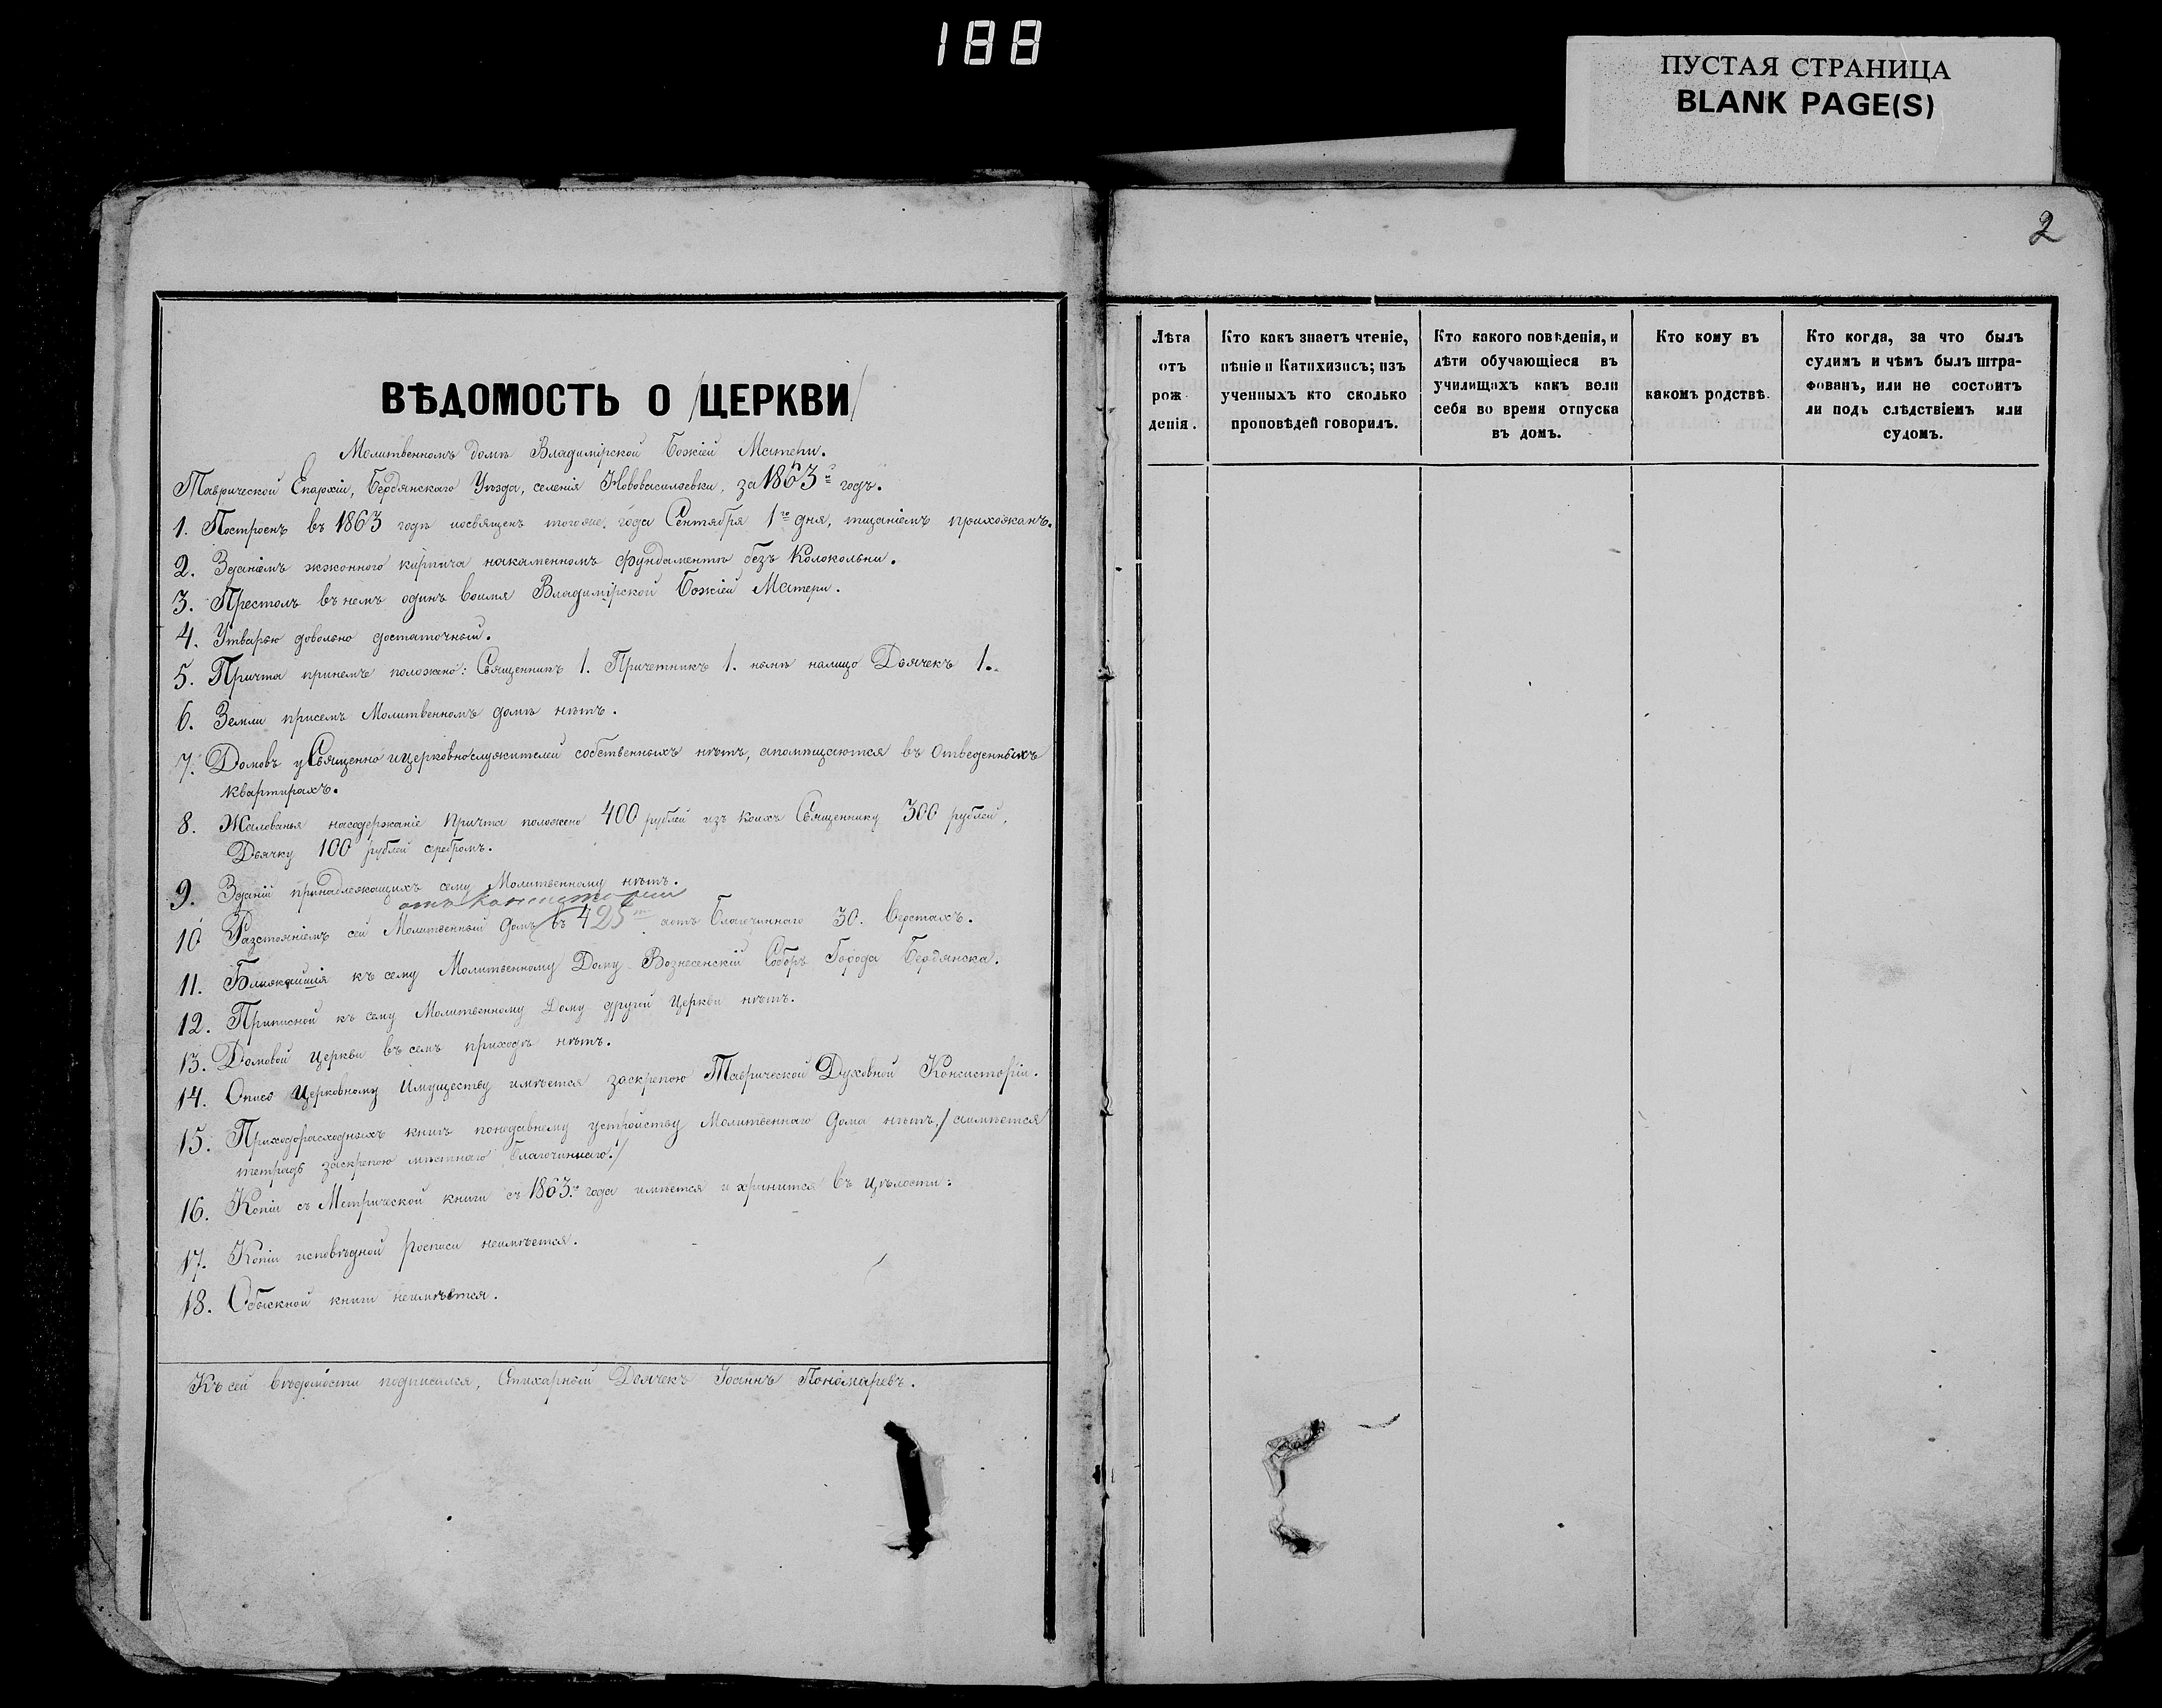 188
ПУСТАЯ СТРАНИЦА
BLANK PAGE(S)
2
ВѢДОМОСТЬ О /ЦЕРКВИ/
Молитвенномъ домѣ Владимірской Божіей Матери.
Таврической Епархіи, Бердянскаго Уѣзда, селенія Нововасилевки, за 1863й годъ.
1. Построенъ въ 1863 годѣ посвященъ тогоже года Сентября 1го дня, тщаніемъ прихожанъ.
2. Зданіемъ жжонного кирпича накаменномъ фундаментѣ безъ Колокольни.
3. Престолъ въ немъ одинъ воимя Владимірской Божіей Матери.
4. Утварью довольно достаточный.
5. Причта принемъ положено: Священникъ 1. Причетникъ 1. нынѣ налицо Дьячекъ 1.
6. Земли присемъ Молитвенномъ домѣ нѣтъ.
7. Домовъ у Священно ицерковнослужителей собственныхъ нѣтъ, апомѣщаются въ отведенныхъ
квартирахъ.
8. Жалованья насодержаніе Причта положено 400 рублей изъ коихъ Священнику 300 рублей,
Дьячку 100 рублей серебромъ.
9. Зданій принадлежащихъ сему Молитвенному нѣтъ.
отъ Консисторіи
10 Разстояніемъ сей Молитвенный Домъ въ 425 аотъ Благочиннаго 30. Верстахъ.
11. Ближайшія къ сему Молитвенному Дому Вознесенскій Соборъ Города Бердянска.
12. Приписной къ сему Молитвенному Дому другой Церкви нѣтъ.
13. Домовой Церкви въ семъ приходѣ нѣтъ.
14. Опись Церковному Имуществу имѣется заскрепою Таврической Духовной Консисторіи.
15. Приходорасходныхъ книгъ понедавнему устройству Молитвеннаго Дома нѣтъ,/ аимѣется
тетрадь заскрепою мѣстнаго Благочиннаго./
16. Копіи съ Метрической книги съ 1863го года имѣется и хранится въ Цѣлости:
17. Копіи исповѣдной росписи неимѣется.
18. Обыскной книги неимѣется.
Къ сей вѣдомости подписался, Стихарный Дьячекъ Іоаннъ Пономаревъ.
Лѣта
отъ
рож
денія.
Кто какъ знаетъ чтеніе,
пѣніе и Катихизисъ; изъ
ученныхъ кто сколько
проповѣдей говорилъ.
Кто какого поведенія, и
дѣти обучающіеся въ
училищахъ какъ вели
себя во время отпуска
въ домъ.
Кто кому въ
какомъ родствѣ.
Кто когда, за что былъ
судимъ и чѣмъ былъ штра-
фованъ, или не состоитъ
ли подъ слѣдствіемъ или
судомъ.